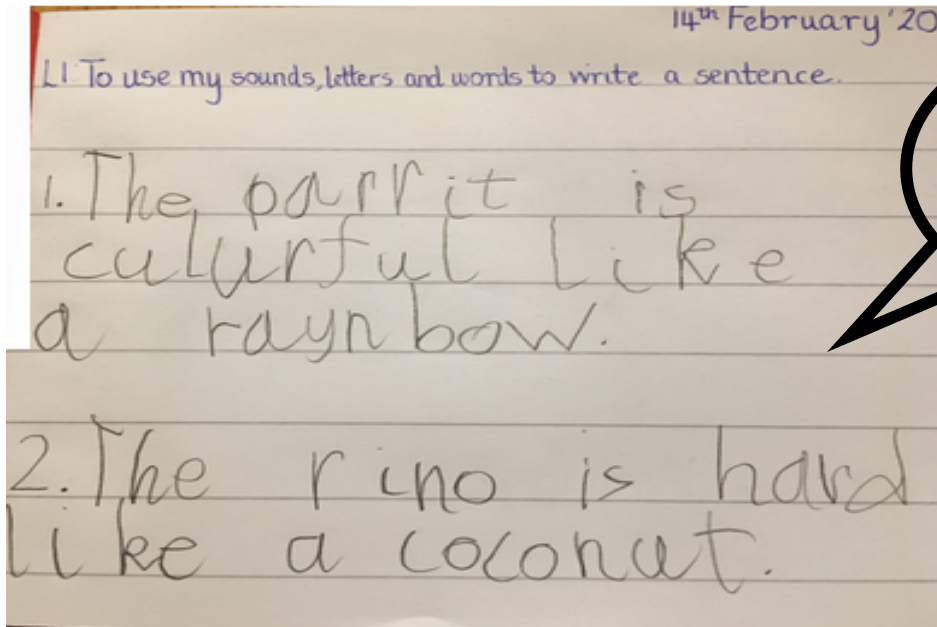 14th February '20
LI: To use my sounds, letters and words to write a sentence.
1. The parrit is
culurful like
a raynbow.
2. The rino is hard
like a coconut.